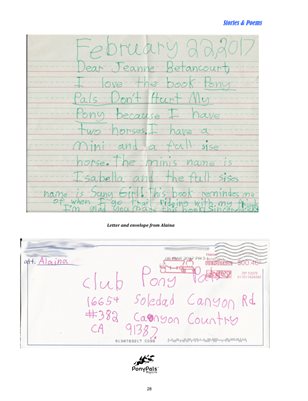 Stories & Poems
February 22, 2017
Dear Jeanne Betancourt,
I love the book Pony
Pals Don't Hurt My
Pony because I have
two horses. I have a
mini and a full sise
horse. The minis name is
Isabella and the full sise
name is Sunu Girl. This book reminds me
of when I go trail Ridging with my
I'm glad you made this book! Sincerely,
Letter and envelope from Alaina
Alaina
Club Pony Pals
16654 Soledad Canyon Rd
#382 Canyon Country
CA 91387
PonyPals
28